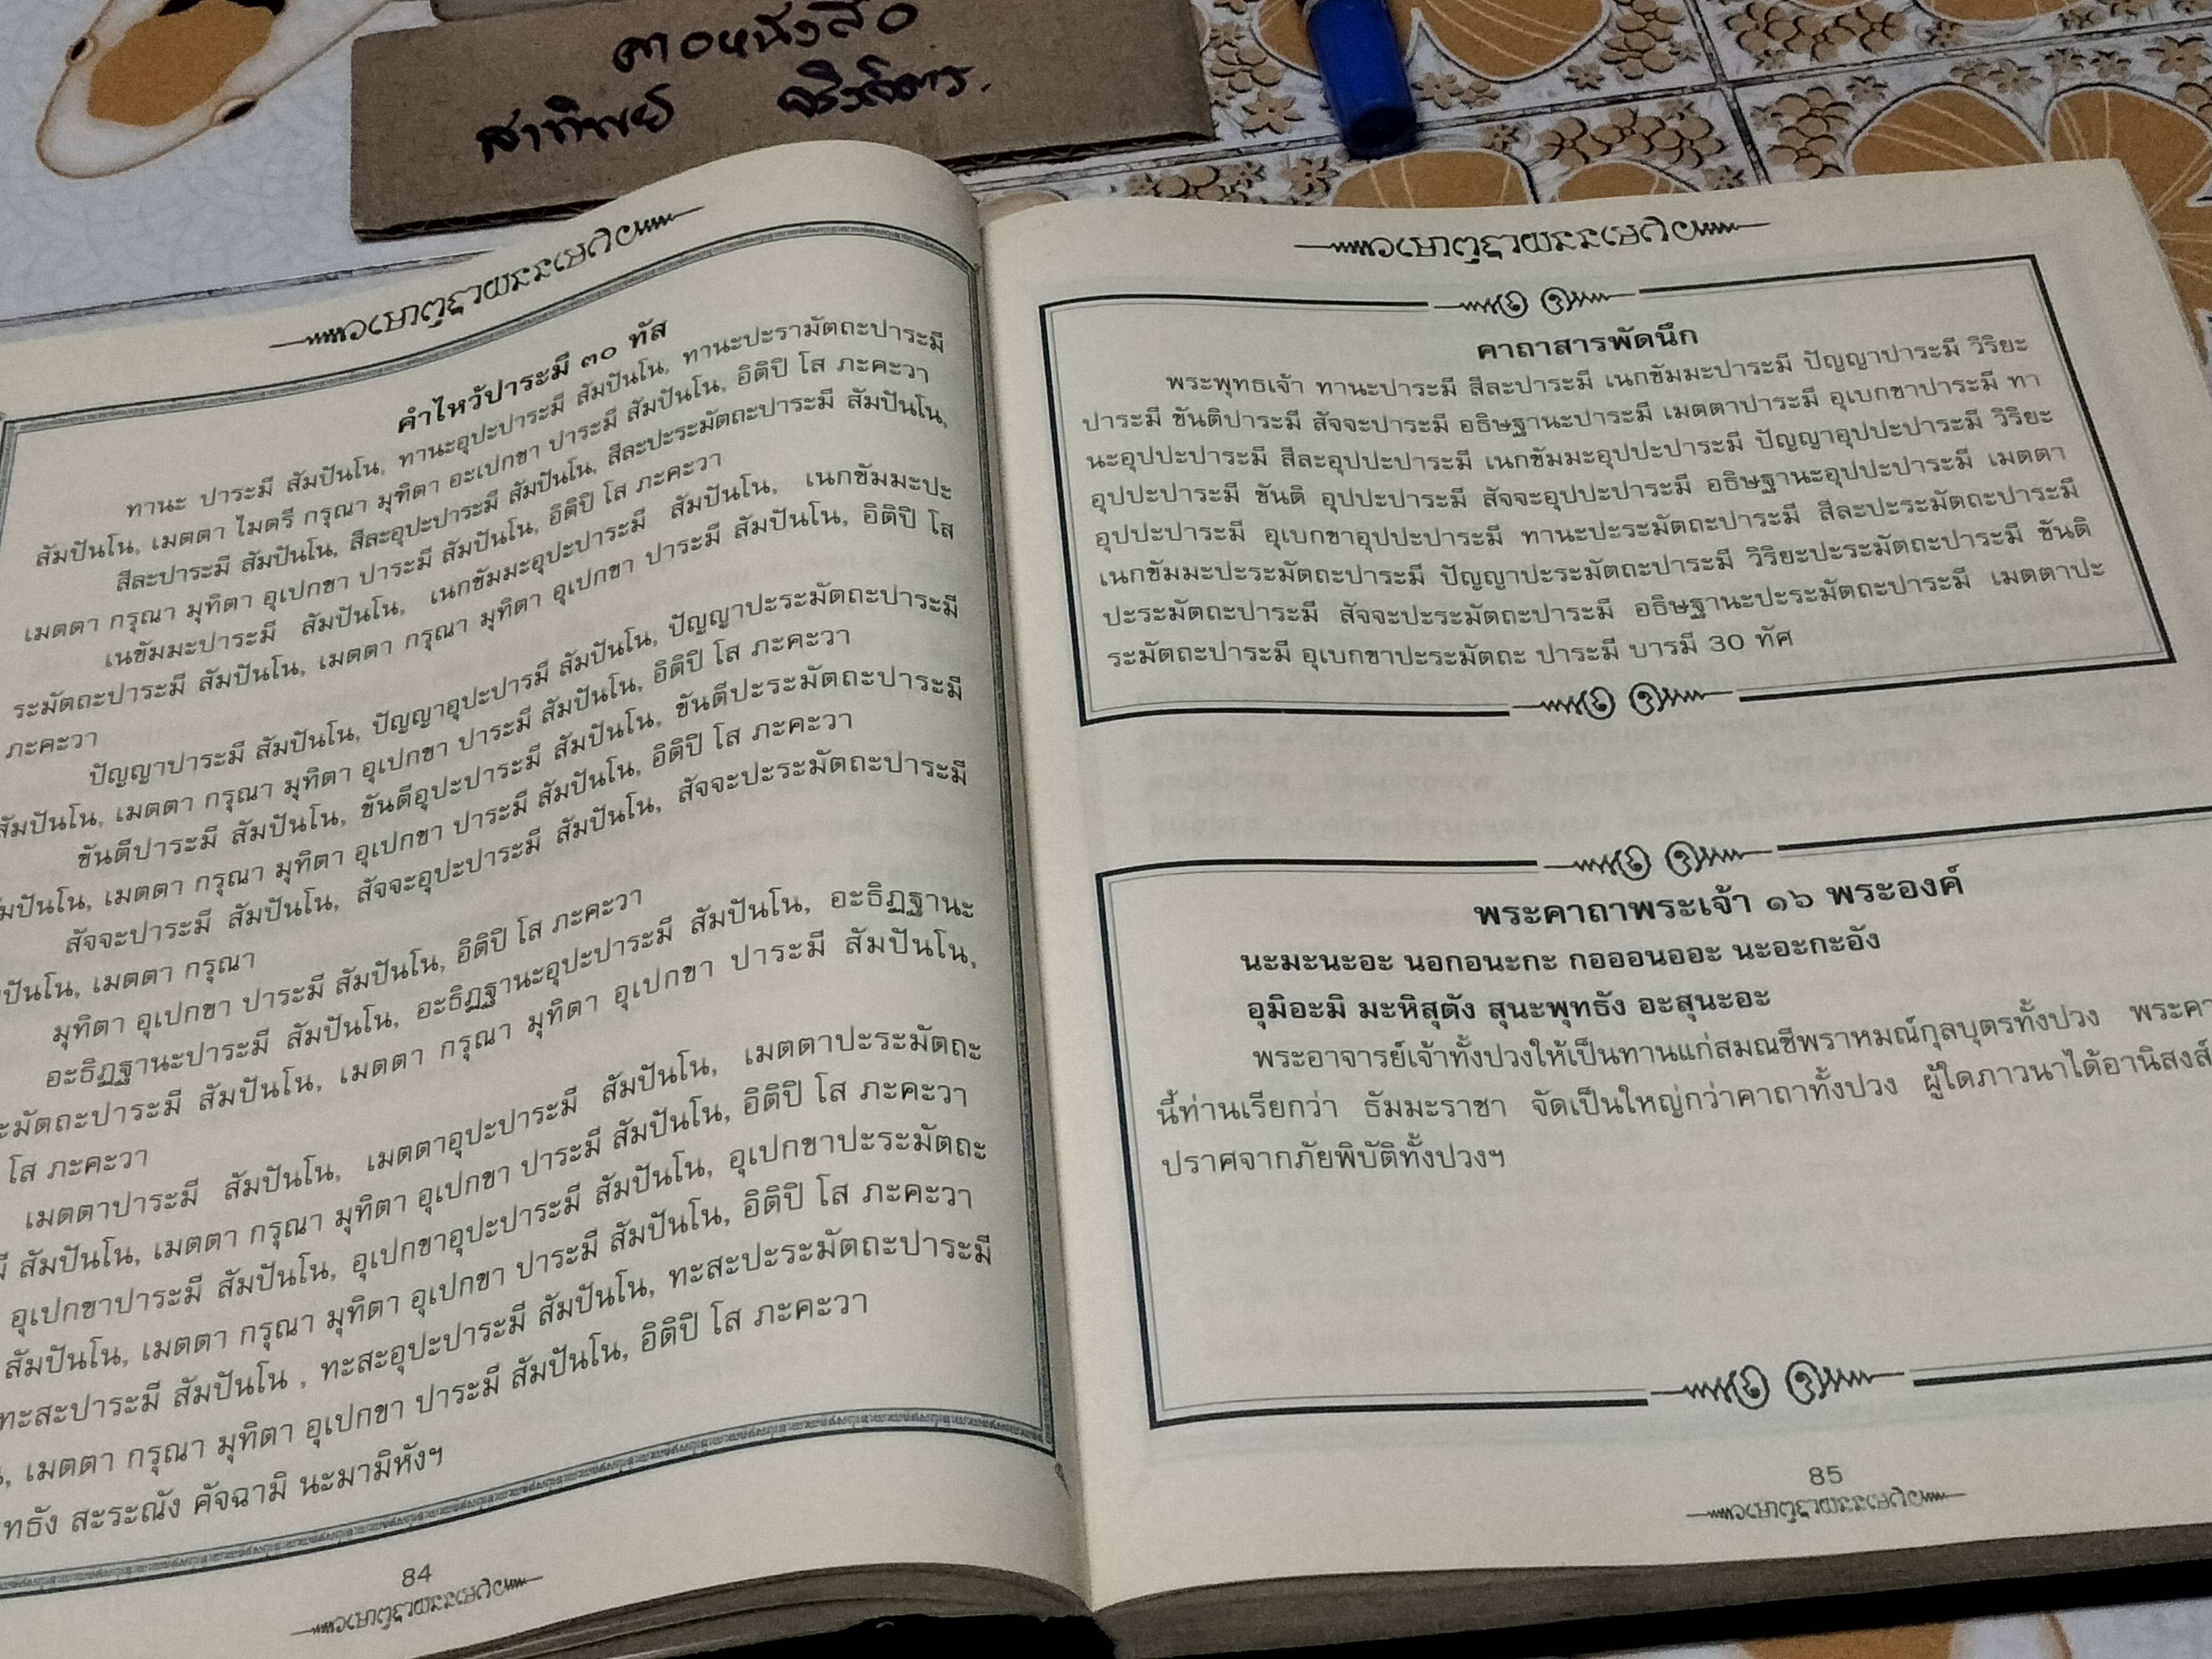 สาทิพย์
คำไหว้ปาระมี ๓๐ ทัส
ทานะ ปาระมี สัมปันโน, ทานะอุปะปาระมี สัมปันโน, ทานะปะรามัตถะปาระมี
สัมปันโน, เมตตา ไมตรี กรุณา มุฑิตา อะเปกขา ปาระมี สัมปันโน, อิติปิ โส ภะคะวา
สีละปาระมี สัมปันโน, สีละอุปะปาระมี สัมปันโน, สีละปะระมัตถะปาระมี สัมปันโน,
เมตตา กรุณา มุทิตา อุเปกขา ปาระมี สัมปันโน, อิติปิ โส ภะคะวา
เนขัมมะปาระมี สัมปันโน, เนกขัมมะอุปะปาระมี สัมปันโน, เนกขัมมะปะ
ระมัตถะปาระมี สัมปันโน, เมตตา กรุณา มุทิตา อุเปกขา ปาระมี สัมปันโน, อิติปิ โส
ภะคะวา
ปัญญาปาระมี สัมปันโน, ปัญญาอุปะปารมี สัมปันโน, ปัญญาปะระมัตถะปาระมี
สัมปันโน, เมตตา กรุณา มุทิตา อุเปกขา ปาระมี สัมปันโน, อิติปิ โส ภะคะวา
ขันตีปาระมี สัมปันโน, ขันตีอุปะปาระมี สัมปันโน, ขันตีปะระมัตถะปาระมี
มปันโน, เมตตา กรุณา มุทิตา อุเปกขา ปาระมี สัมปันโน, อิติปิ โส ภะคะวา
สัจจะปาระมี สัมปันโน, สัจจะอุปะปาระมี สัมปันโน, สัจจะปะระมัตถะปาระมี
ปันโน, เมตตา กรุณา
มุทิตา อุเปกขา ปาระมี สัมปันโน, อิติปิ โส ภะคะวา
อะธิฏฐานะปาระมี สัมปันโน, อะธิฏฐานะอุปะปาระมี สัมปันโน, อะธิฏฐานะ
ะมัตถะปาระมี สัมปันโน, เมตตา กรุณา มุทิตา อุเปกขา ปาระมี สัมปันโน,
โส ภะคะวา
เมตตาปาระมี สัมปันโน, เมตตาอุปะปาระมี สัมปันโน, เมตตาปะระมัตถะ
สัมปันโน, เมตตา กรุณา มุทิตา อุเปกขา ปาระมี สัมปันโน, อิติปิ โส ภะคะวา
อุเปกขาปาระมี สัมปันโน, อุเปกขาอุปะปาระมี สัมปันโน, อุเปกขาปะระมัตถะ
สัมปันโน, เมตตา กรุณา มุทิตา อุเปกขา ปาระมี สัมปันโน, อิติปิ โส ภะคะวา
ทะสะปาระมี สัมปันโน , ทะสะอุปะปาระมี สัมปันโน, ทะสะปะระมัตถะปาระมี
, เมตตา กรุณา มุทิตา อุเปกขา ปาระมี สัมปันโน, อิติปิ โส ภะคะวา
ทธัง สะระณัง คัจฉามิ นะมามิหังฯ
84
คาถาสารพัดนึก
พระพุทธเจ้า ทานะปาระมี สีละปาระมี เนกขัมมะปาระมี ปัญญาปาระมี วิริยะ
ปาระมี ขันติปาระมี สัจจะปาระมี อธิษฐานะปาระมี เมตตาปาระมี อุเบกขาปาระมี ทา
นะอุปปะปาระมี สีละอุปปะปาระมี เนกขัมมะอุปปะปาระมี ปัญญาอุปปะปาระมี วิริยะ
อุปปะปาระมี ขันติ อุปปะปาระมี สัจจะอุปปะปาระมี อธิษฐานะอุปปะปาระมี เมตตา
อุปปะปาระมี อุเบกขาอุปปะปาระมี ทานะปะระมัตถะปาระมี สีละปะระมัตถะปาระมี
เนกขัมมะปะระมัตถะปาระมี ปัญญาปะระมัตถะปาระมี วิริยะปะระมัตถะปาระมี ขันติ
ปะระมัตถะปาระมี สัจจะปะระมัตถะปาระมี อธิษฐานะปะระมัตถะปาระมี เมตตาปะ
ระมัตถะปาระมี อุเบกขาปะระมัตถะ ปาระมี บารมี 30 ทัศ
พระคาถาพระเจ้า ๑๖ พระองค์
นะมะนะอะ นอกอนะกะ กอออนออะ นะอะกะอัง
อุมิอะมิ มะหิสุตัง สุนะพุทธัง อะสุนะอะ
พระอาจารย์เจ้าทั้งปวงให้เป็นทานแก่สมณชีพราหมณ์กุลบุตรทั้งปวง พระคา
นี้ท่านเรียกว่า ธัมมะราชา จัดเป็นใหญ่กว่าคาถาทั้งปวง ผู้ใดภาวนาได้อานิสงส์
ปราศจากภัยพิบัติทั้งปวงฯ
85